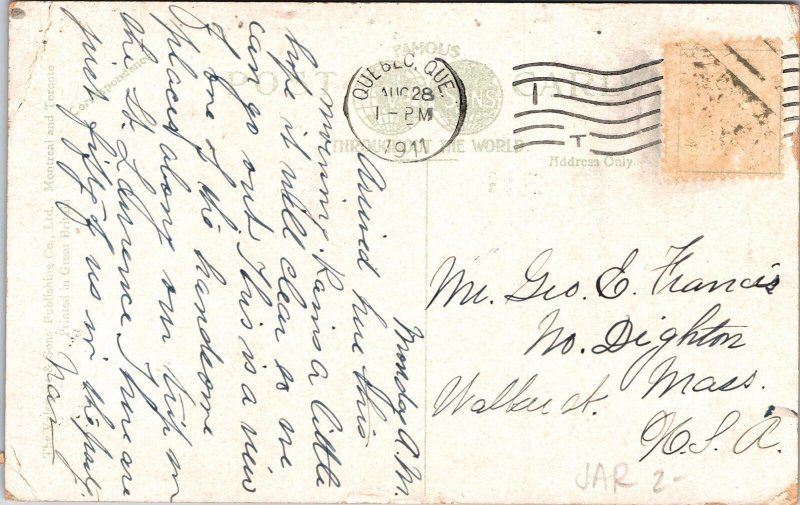 FAMOUS
POST CARD
THROUGHOUT THE WORLD
Correspondence
Address Only
QUEBEC, QUE.
AUG 28
1 - PM
1911
Monday A.M.
Arrived here this
morning. Rains a little
hope it will clear so we
can go out. This is a view
of one of the handsome
places along our trip on
the St. Lawrence. There are
just fifty of us in the party.
Mr. Geo. E. Francis
No. Dighton
Walker st. Mass.
U.S.A.
JAR 2-
Sons Publishing Co., Ltd. Montreal and Toronto
Printed in Great